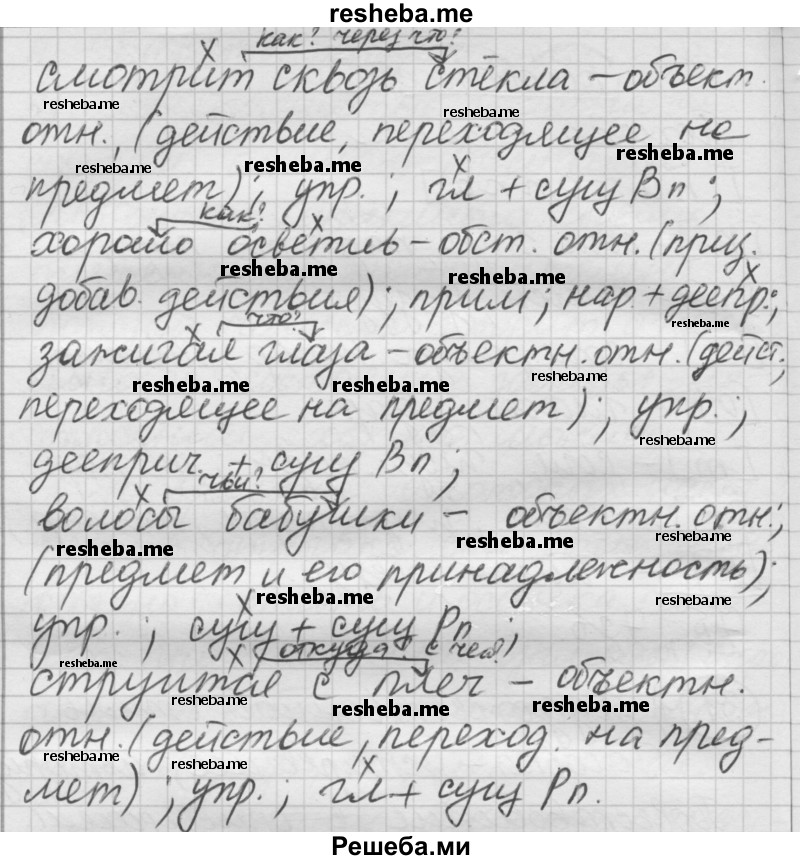 resheba.me
как? через что?
смотрит сквозь стёкла – объект.
resheba.me resheba.me
отн., (действие, переходящее на
resheba.me resheba.me resheba.me
предмет); упр.; гл + сущ Вп;
как?
хорошо осветив – обст. отн. (приз.
resheba.me resheba.me
добав. действия); прим; нар. + деепр.;
resheba.me
что?
зажигая глаза – объектн. отн. (дейст.,
resheba.me resheba.me resheba.me
переходящее на предмет); упр.;
resheba.me
дееприч. + сущ Вп;
чьи?
волосы бабушки – объектн. отн.;
resheba.me resheba.me resheba.me
(предмет и его принадлежность);
resheba.me resheba.me
упр.; сущ + сущ Рп;
откуда? с чего?
resheba.me
струится с плеч – объектн.
resheba.me resheba.me resheba.me
отн. (действие, переход. на пред-
resheba.me resheba.me resheba.me
мет); упр.; гл + сущ Рп.
Решеба.ми